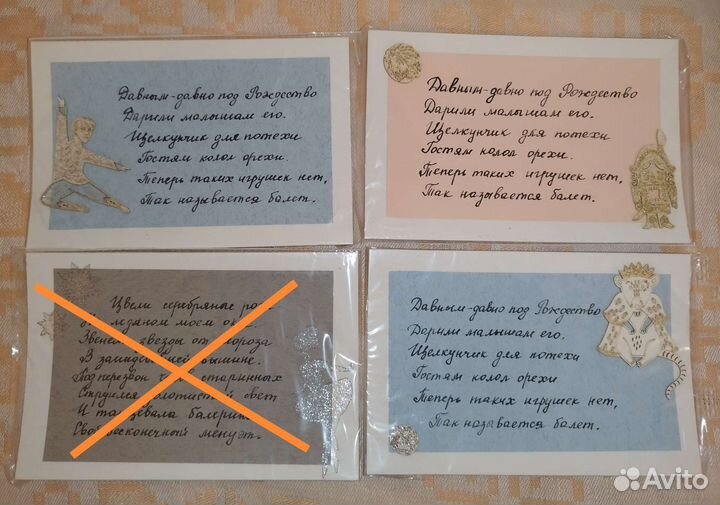 Давным-давно под Рождество
Дарили малышам его.
Щелкунчик для потехи
Гостям колол орехи.
Теперь таких игрушек нет,
Так называется балет.
Давным-давно под Рождество
Дарили малышам его.
Щелкунчик для потехи
Гостям колол орехи.
Теперь таких игрушек нет,
Так называется балет.
Цвели серебряные
моем
звезды от мороза
В вышине.
старинных
Струился
И танцевала
менуэт.
Давным-давно под Рождество
Дарили малышам его.
Щелкунчик для потехи
Гостям колол орехи
Теперь таких игрушек нет,
Так называется балет.
Avito